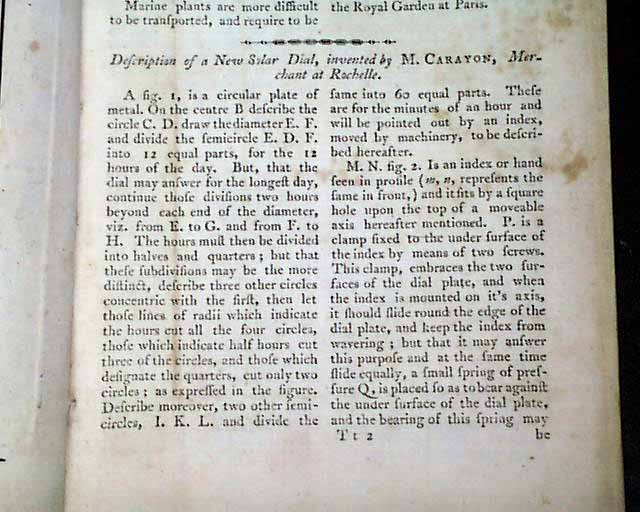 Marine plants are more difficult
to be tranſported, and require to be
the Royal Garden at Paris.
Deſcription of a New Solar Dial, invented by M. CARAYON, Mer-
chant at Rochelle.
A fig. 1, is a circular plate of
metal. On the centre B deſcribe the
circle C. D. draw the diameter E. F.
and divide the ſemicircle E. D. F.
into 12 equal parts, for the 12
hours of the day. But, that the
dial may anſwer for the longeſt day,
continue thoſe diviſions two hours
beyond each end of the diameter,
viz. from E. to G. and from F. to
H. The hours muſt then be divided
into halves and quarters; but that
theſe ſubdiviſions may be the more
diſtinct, deſcribe three other circles
concentric with the firſt, then let
thoſe lines of radii which indicate
the hours cut all the four circles,
thoſe which indicate half hours cut
three of the circles, and thoſe which
deſignate the quarters, cut only two
circles; as expreſſed in the figure.
Deſcribe moreover, two other ſemi-
circles, I. K. L. and divide the
ſame into 60 equal parts. Theſe
are for the minutes of an hour and
will be pointed out by an index,
moved by machinery, to be deſcri-
bed hereafter.
M. N. fig. 2. Is an index or hand
ſeen in profile (m, n, repreſents the
ſame in front,) and it fits by a ſquare
hole upon the top of a moveable
axis hereafter mentioned. P. is a
clamp fixed to the under ſurface of
the index by means of two ſcrews.
This clamp, embraces the two ſur-
faces of the dial plate, and when
the index is mounted on it's axis,
it ſhould ſlide round the edge of the
dial plate, and keep the index from
wavering; but that it may anſwer
this purpoſe and at the ſame time
ſlide equally, a ſmall ſpring of preſ-
ſure Q, is placed ſo as to bear againſt
the under ſurface of the dial plate,
and the bearing of this ſpring may
T t 2
be